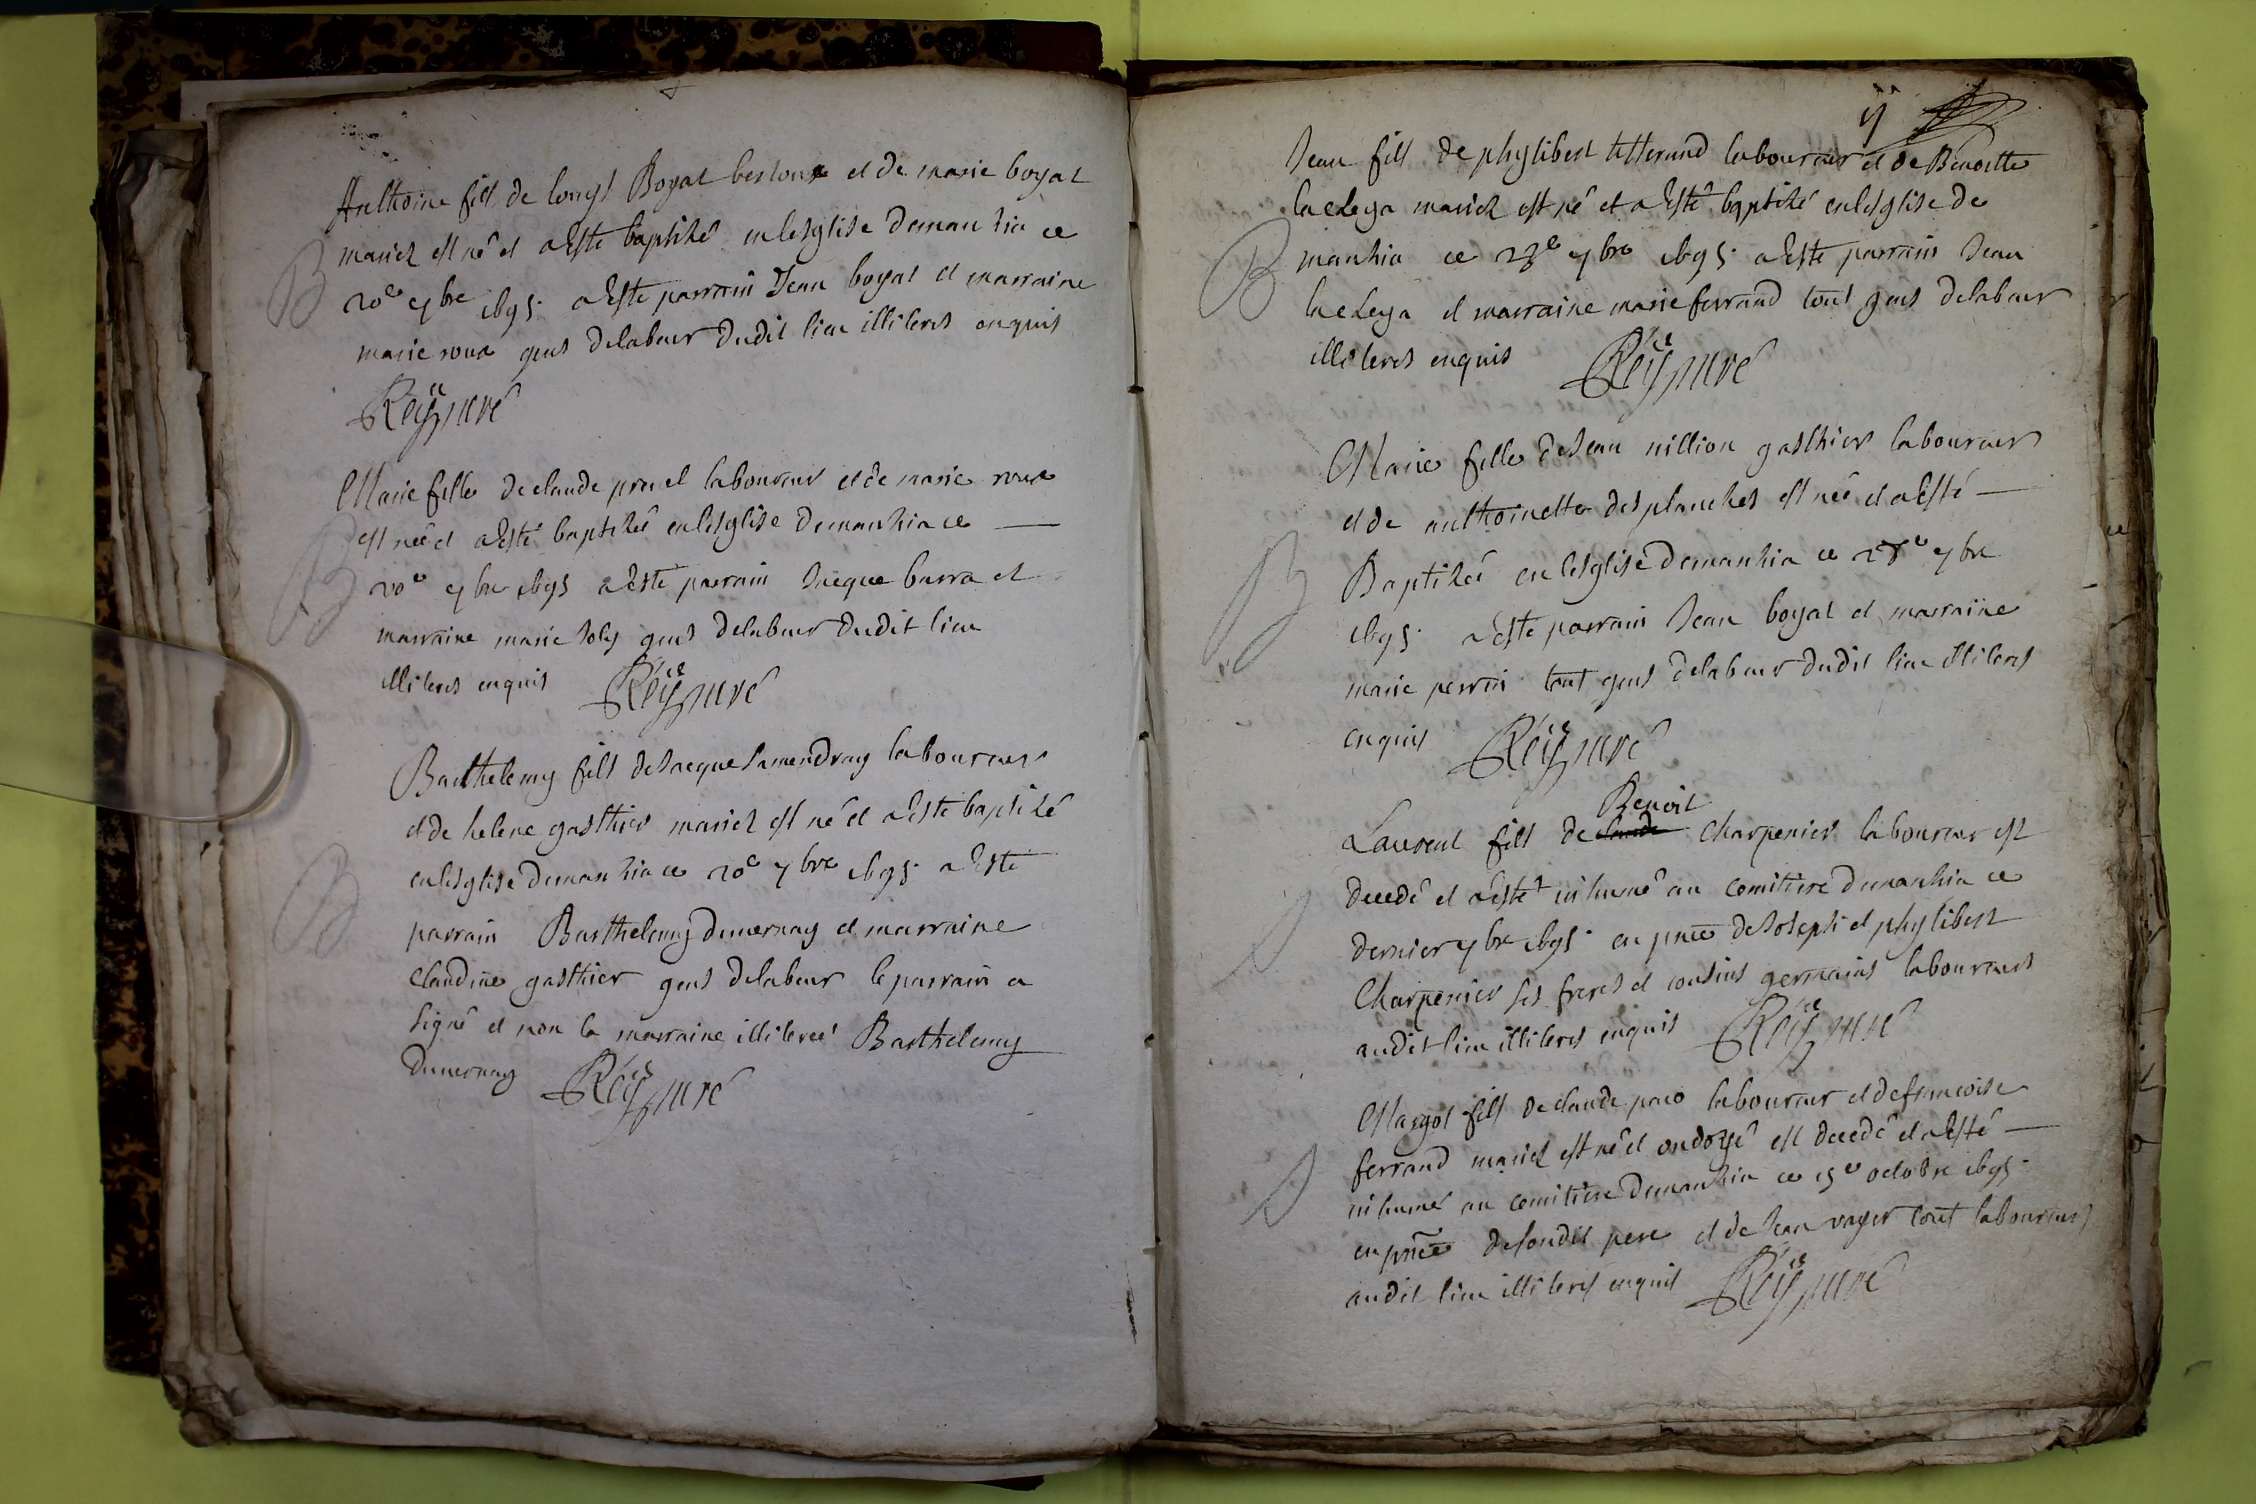 Anthoine fils de louys Boyat berloux et de marie boyat
B
mariez est né et a Esté baptizé en lesglise demanzia ce
20e 7bre 1695. a Este parrain Jean boyat et marraine
marie roux gens delabeur dudit lieu illiterés enquis
Reÿ curé
Marie fille declaude pruel laboureur et de marie roux
B
est neé et a Esté baptizeé en lesglise demanzia ce
20e 7bre 1695 a Este parrain Jacque burra et
marraine marie Joly gens delabeur dudit lieu
illiterés enquis Reÿ curé
Barthelemy fils deJacque Jamendruy laboureur
et de helene gasthier mariez est né et a Este baptizé
B
en lesglise demanzia ce 20e 7bre 1695. a Este
parrain Barthelemy dumernay et marraine
Claudine gasthier gens delabeur le parrain a
signé et non la marraine illitereé Barthelemy
dumernay Reÿ curé
Jean fils de phylibert tellerand laboureur et de Benoitte
mariez est né et a Esté baptizé en lesglise de
B
manzia ce 28e 7bre 1695. a Este parrain Jean
et marraine marie ferrand tout gens delabeur
illiterés enquis Reÿ curé
Marie fille deJean nillion gasthier laboureur
et de anthoinette desplanches est neé et a Esté
B
Baptizeé en lesglise demanzia ce 28e 7bre
1695. a Este parrain Jean boyat et marraine
marie perrin tout gens delabeur dudit lieu illiterés
enquis Reÿ curé
Benoit
Laurent fils de claude Charpenier laboureur est
decedé et a esté inhumé au cemitiere demanzia ce
S
dernier 7bre 1695. en pnce deJoseph et phylibert
Charpenier ses freres et cousins germains laboureurs
audit lieu illiterés enquis Reÿ curé
Margot fils declaude laboureur et defrancoise
ferrand mariez est né et ondoyé est decedé et a Esté
S
inhumé au cemitiere demanzia ce octobre 1695.
en pnce desondit pere et de Jean vager tout laboureurs
audit lieu illiterés enquis Reÿ curé